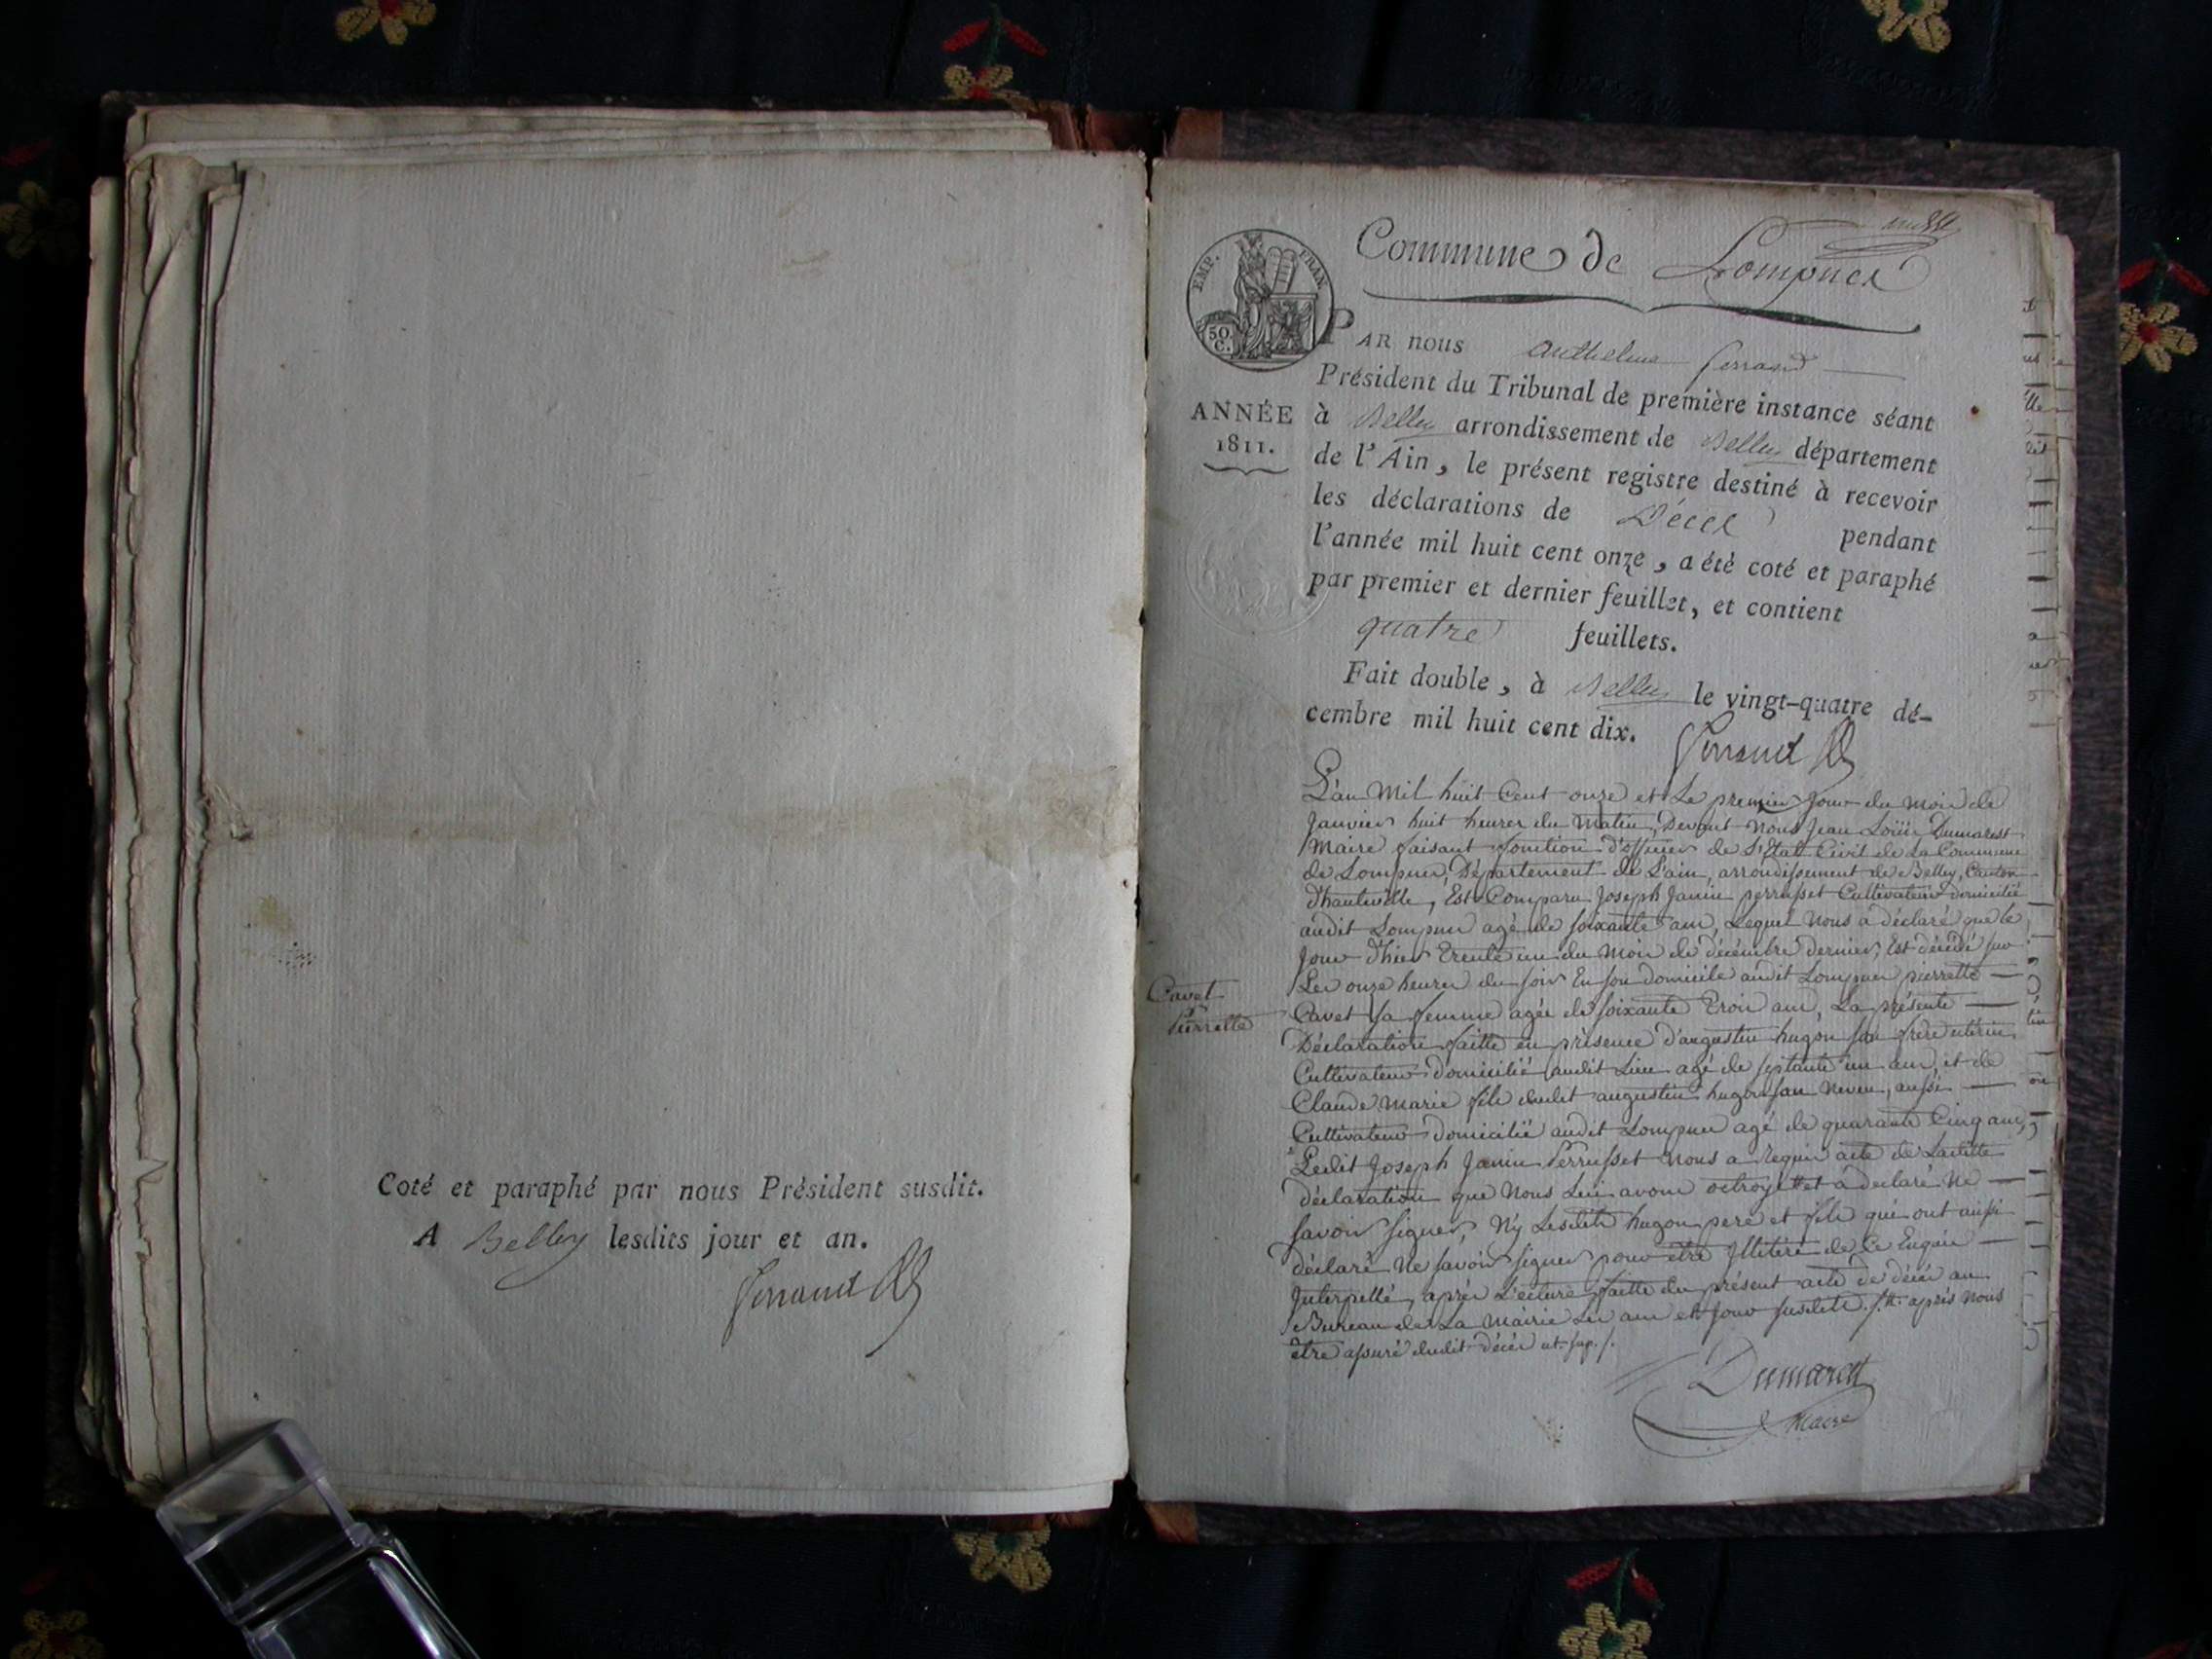 Coté et paraphé par nous Président susdit.
A Belley lesdits jour et an.
Ferrand
Commune de Lompnes
EMP. FRAN.
50 C.
PAR nous Anthelme ferrand
Président du Tribunal de première instance séant
ANNÉE
1811.
à Belley arrondissement de Belley département
de l'Ain, le présent registre destiné à recevoir
les déclarations de Décès pendant
l'année mil huit cent onze, a été coté et paraphé
par premier et dernier feuillet, et contient
quatre feuillets.
Fait double, à Belley le vingt-quatre dé-
cembre mil huit cent dix. Ferrand
L'an Mil huit Cent onze et Le premier Jour du mois de
Janvier huit heures du Matin, Devant Nous Jean Loüis Dumarest
Maire faisant fonction d'officier de L'Etat Civil de La Commune
de Lompnes, Département de L'ain, arrondissement de Belley, Canton
d'hauteville, Est Comparu Joseph Janin perrusset Cultivateur domicilié
audit Lompnes agé de soixante ans, Lequel Nous a déclaré que le
Jour d'hier trente un du Mois de décembre dernier, Est décédé sur
Les onze heures du soir En son domicile audit Lompnes pierrette
Cavet
Pierrette
Cavet sa femme agée de soixante trois ans, La présente
Déclaration faitte en présence d'augustin hugon son frère utérin
Cultivateur domicilié audit Lieu agé de septante un ans, et de
Claude Marie fils dudit augustin hugon son Neveu, aussi
Cultivateur domicilié audit Lompnes agé de quarante Cinq ans,
Ledit Joseph Janin Perrusset Nous a requis acte de Laditte
déclaration que Nous Lui avons octroyé et a déclaré Ne
savoir signer, N'y Lesdits hugon pere et fils qui ont aussi
déclaré Ne savoir signer pour être Illitéré de Ce Enquis
Interpellé, après Lecture faitte du présent acte de décès au
Bureau de La Mairie Les ans et Jour susdits. après Nous
être assuré dudit décès ut. sup.
Dumarest
Maire